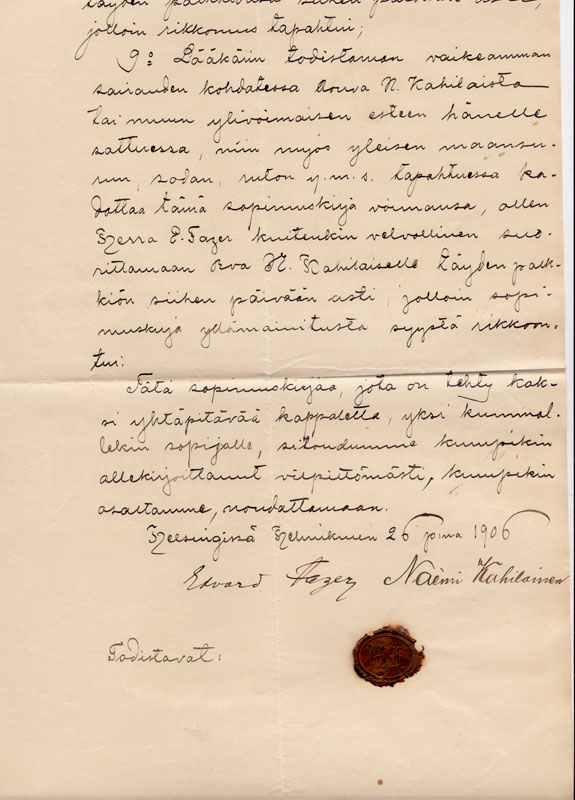 täyden palkkionsa siihen päivään asti,
jolloin rikkomus tapahtui;
9:o Lääkärin todistaman vaikeamman
sairauden kohdatessa Rouva N. Kahilaista
tai muun ylivoimaisen esteen hänelle
sattuessa, niin myös yleisen maansu-
run, sodan, ruton y.m.s. tapahtuessa ka-
dottaa tämä sopimuskirja voimansa, ollen
Herra E. Fazer kuitenkin velvollinen suo-
rittamaan Rva N. Kahilaiselle täyden palk-
kion siihen päivään asti, jolloin sopi-
muskirja ylämainitusta syystä rikkoon-
tui.
Tätä sopimuskirjaa, jota on tehty kak-
si yhtäpitävää kappaletta, yksi kummal-
lekin sopijalle, sitoudumme kumpikin
allekirjoittanut vilpittömästi, kumpikin
osaltamme, noudattamaan.
Helsingissä Helmikuun 26 p:nä 1906
Edvard Fazer Naëmi Kahilainen
Todistavat: